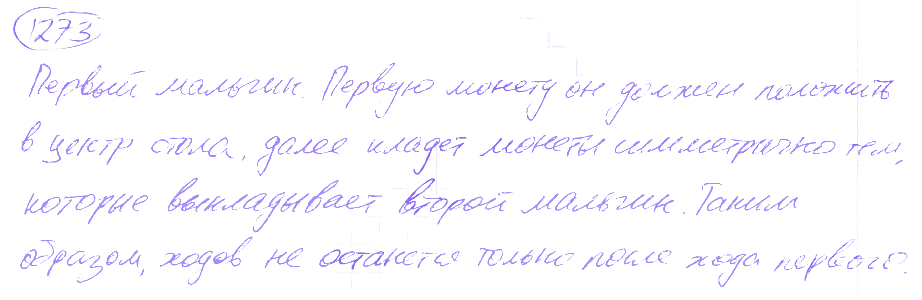 1273
Первый мальчик. Первую монету он должен положить
в центр стола, далее кладет монеты симметрично тем,
которые выкладывает второй мальчик. Таким
образом, ходов не останется только после хода первого.